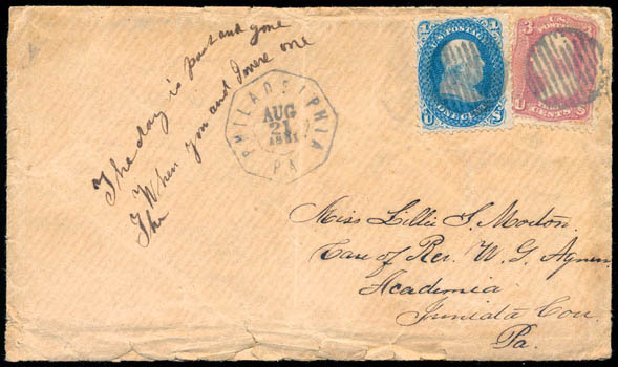 The day is past and gone
When you and I were one
The
PHILADELPHIA
AUG
21
1861
PA
U.S. POSTAGE
ONE CENT
U S
3
U.S.
CENTS
U S
Miss Lillie S. Morton.
Care of Rev. W. G.
Academia
Juniata Cou.
Pa.